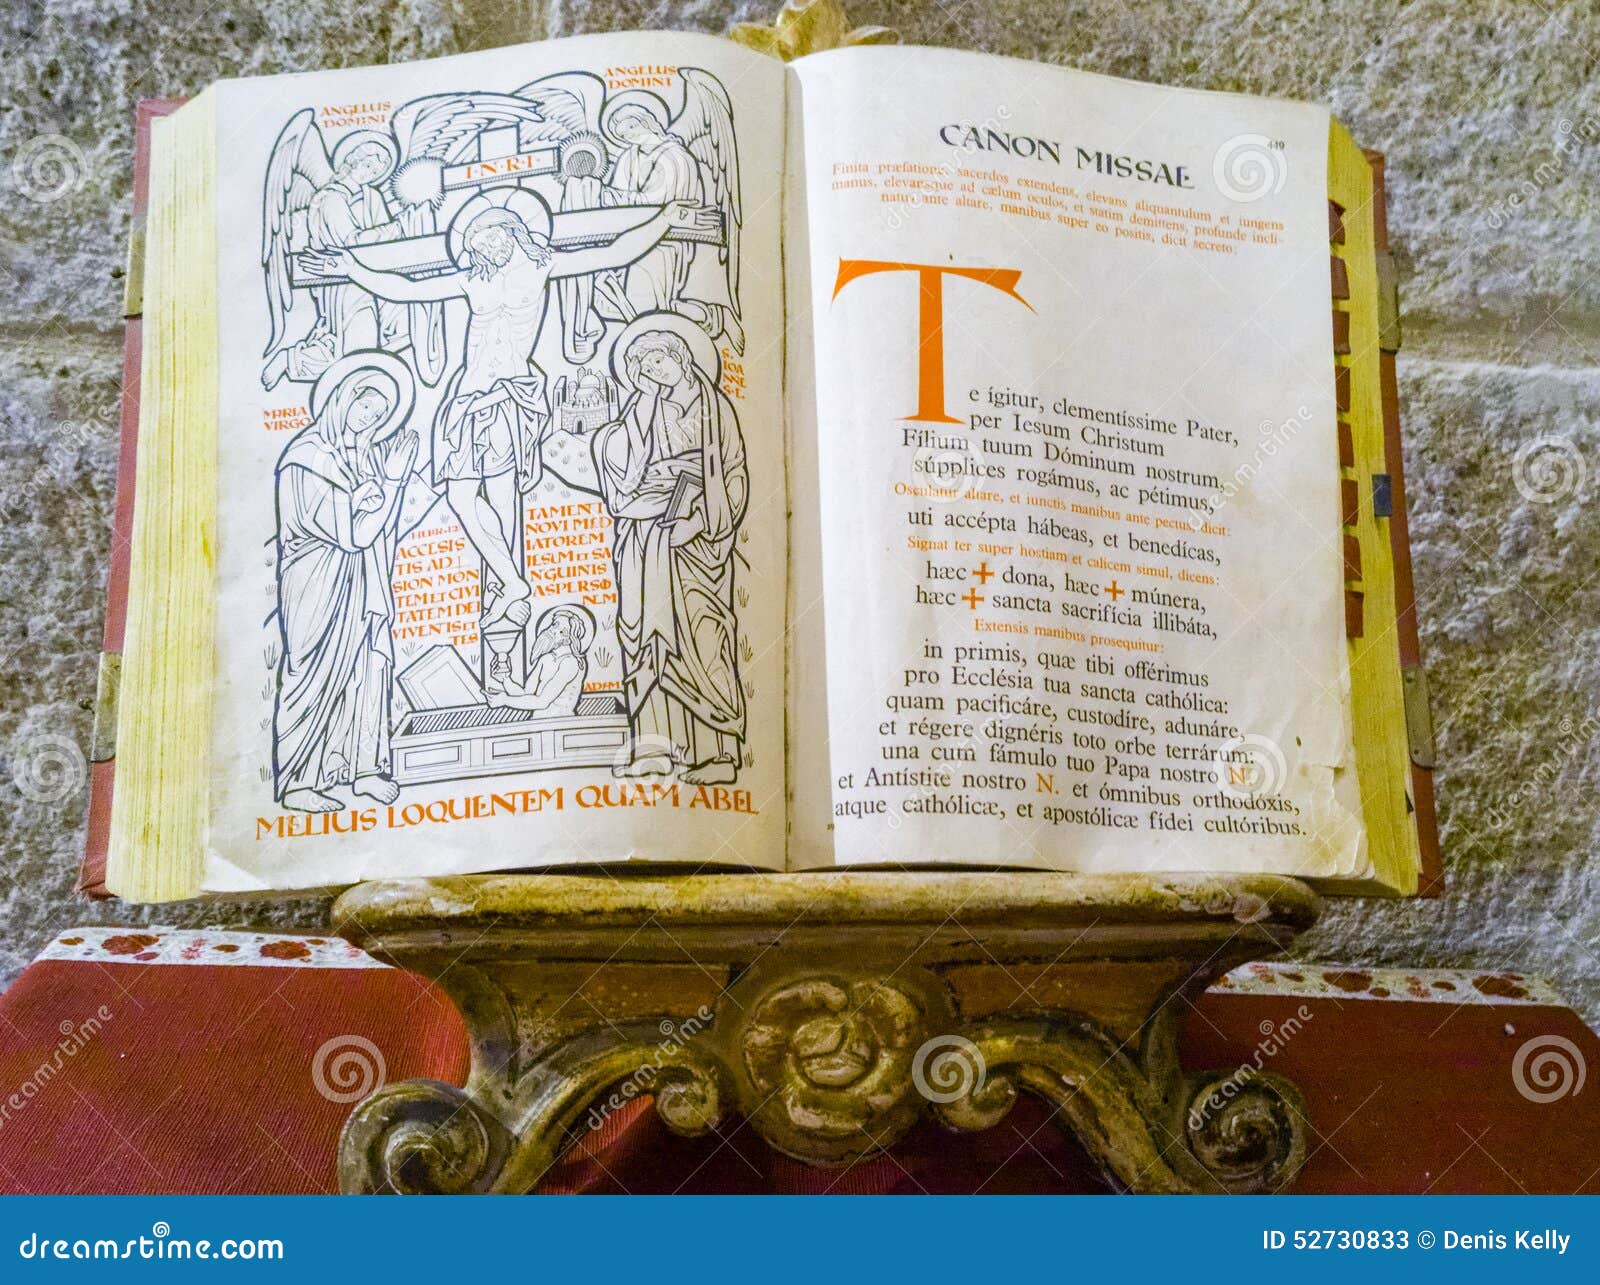 ANGELUS
DOMINI
ANGELUS
DOMINI
I·N·R·I·
MARIA
VIRGO
S.
IOA
NNE
S·E·
HEBR·12
ACCESIS
TIS AD
SION MON
TEM ET CIVI
TATEM DEI
VIVENTIS ET
TES
TAMENTI
NOVI MED
IATOREM
JESUM ET SA
NGUINIS
ASPERSIO
NEM
ADAM
MELIUS LOQUENTEM QUAM ABEL
449
CANON MISSAE
Finita præfatione, sacerdos extendens, elevans aliquantulum et iungens
manus, elevansque ad cælum oculos, et statim demittens, profunde incli-
natus ante altare, manibus super eo positis, dicit secreto:
Te ígitur, clementíssime Pater,
per Iesum Christum
Fílium tuum Dóminum nostrum,
súpplices rogámus, ac pétimus,
Osculatur altare, et iunctis manibus ante pectus, dicit:
uti accépta hábeas, et benedícas,
Signat ter super hostiam et calicem simul, dicens:
hæc ✠ dona, hæc ✠ múnera,
hæc ✠ sancta sacrifícia illibáta,
Extensis manibus prosequitur:
in primis, quæ tibi offérimus
pro Ecclésia tua sancta cathólica:
quam pacificáre, custodíre, adunáre,
et régere dignéris toto orbe terrárum:
una cum fámulo tuo Papa nostro N.
et Antístite nostro N. et ómnibus orthodóxis,
atque cathólicæ, et apostólicæ fídei cultóribus.
dreamstime.com
ID 52730833 © Denis Kelly